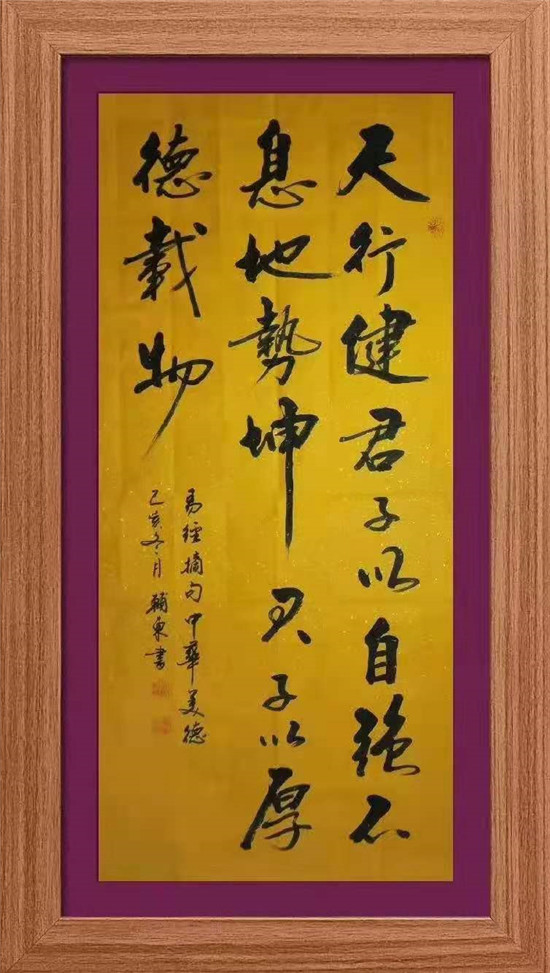 天行健君子以自强不
息地势坤君子以厚
德载物
易经摘句中华美德
己亥冬月辅东书